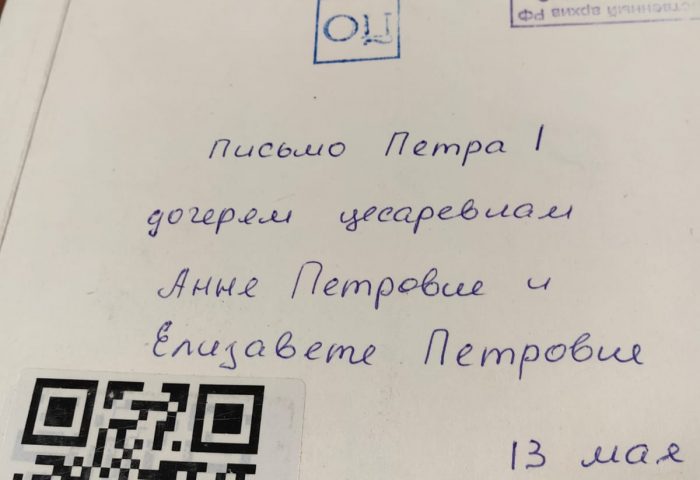 ОЦ
ственный архив РФ
письмо Петра I
дочерям цесаревнам
Анне Петровне и
Елизавете Петровне
13 мая